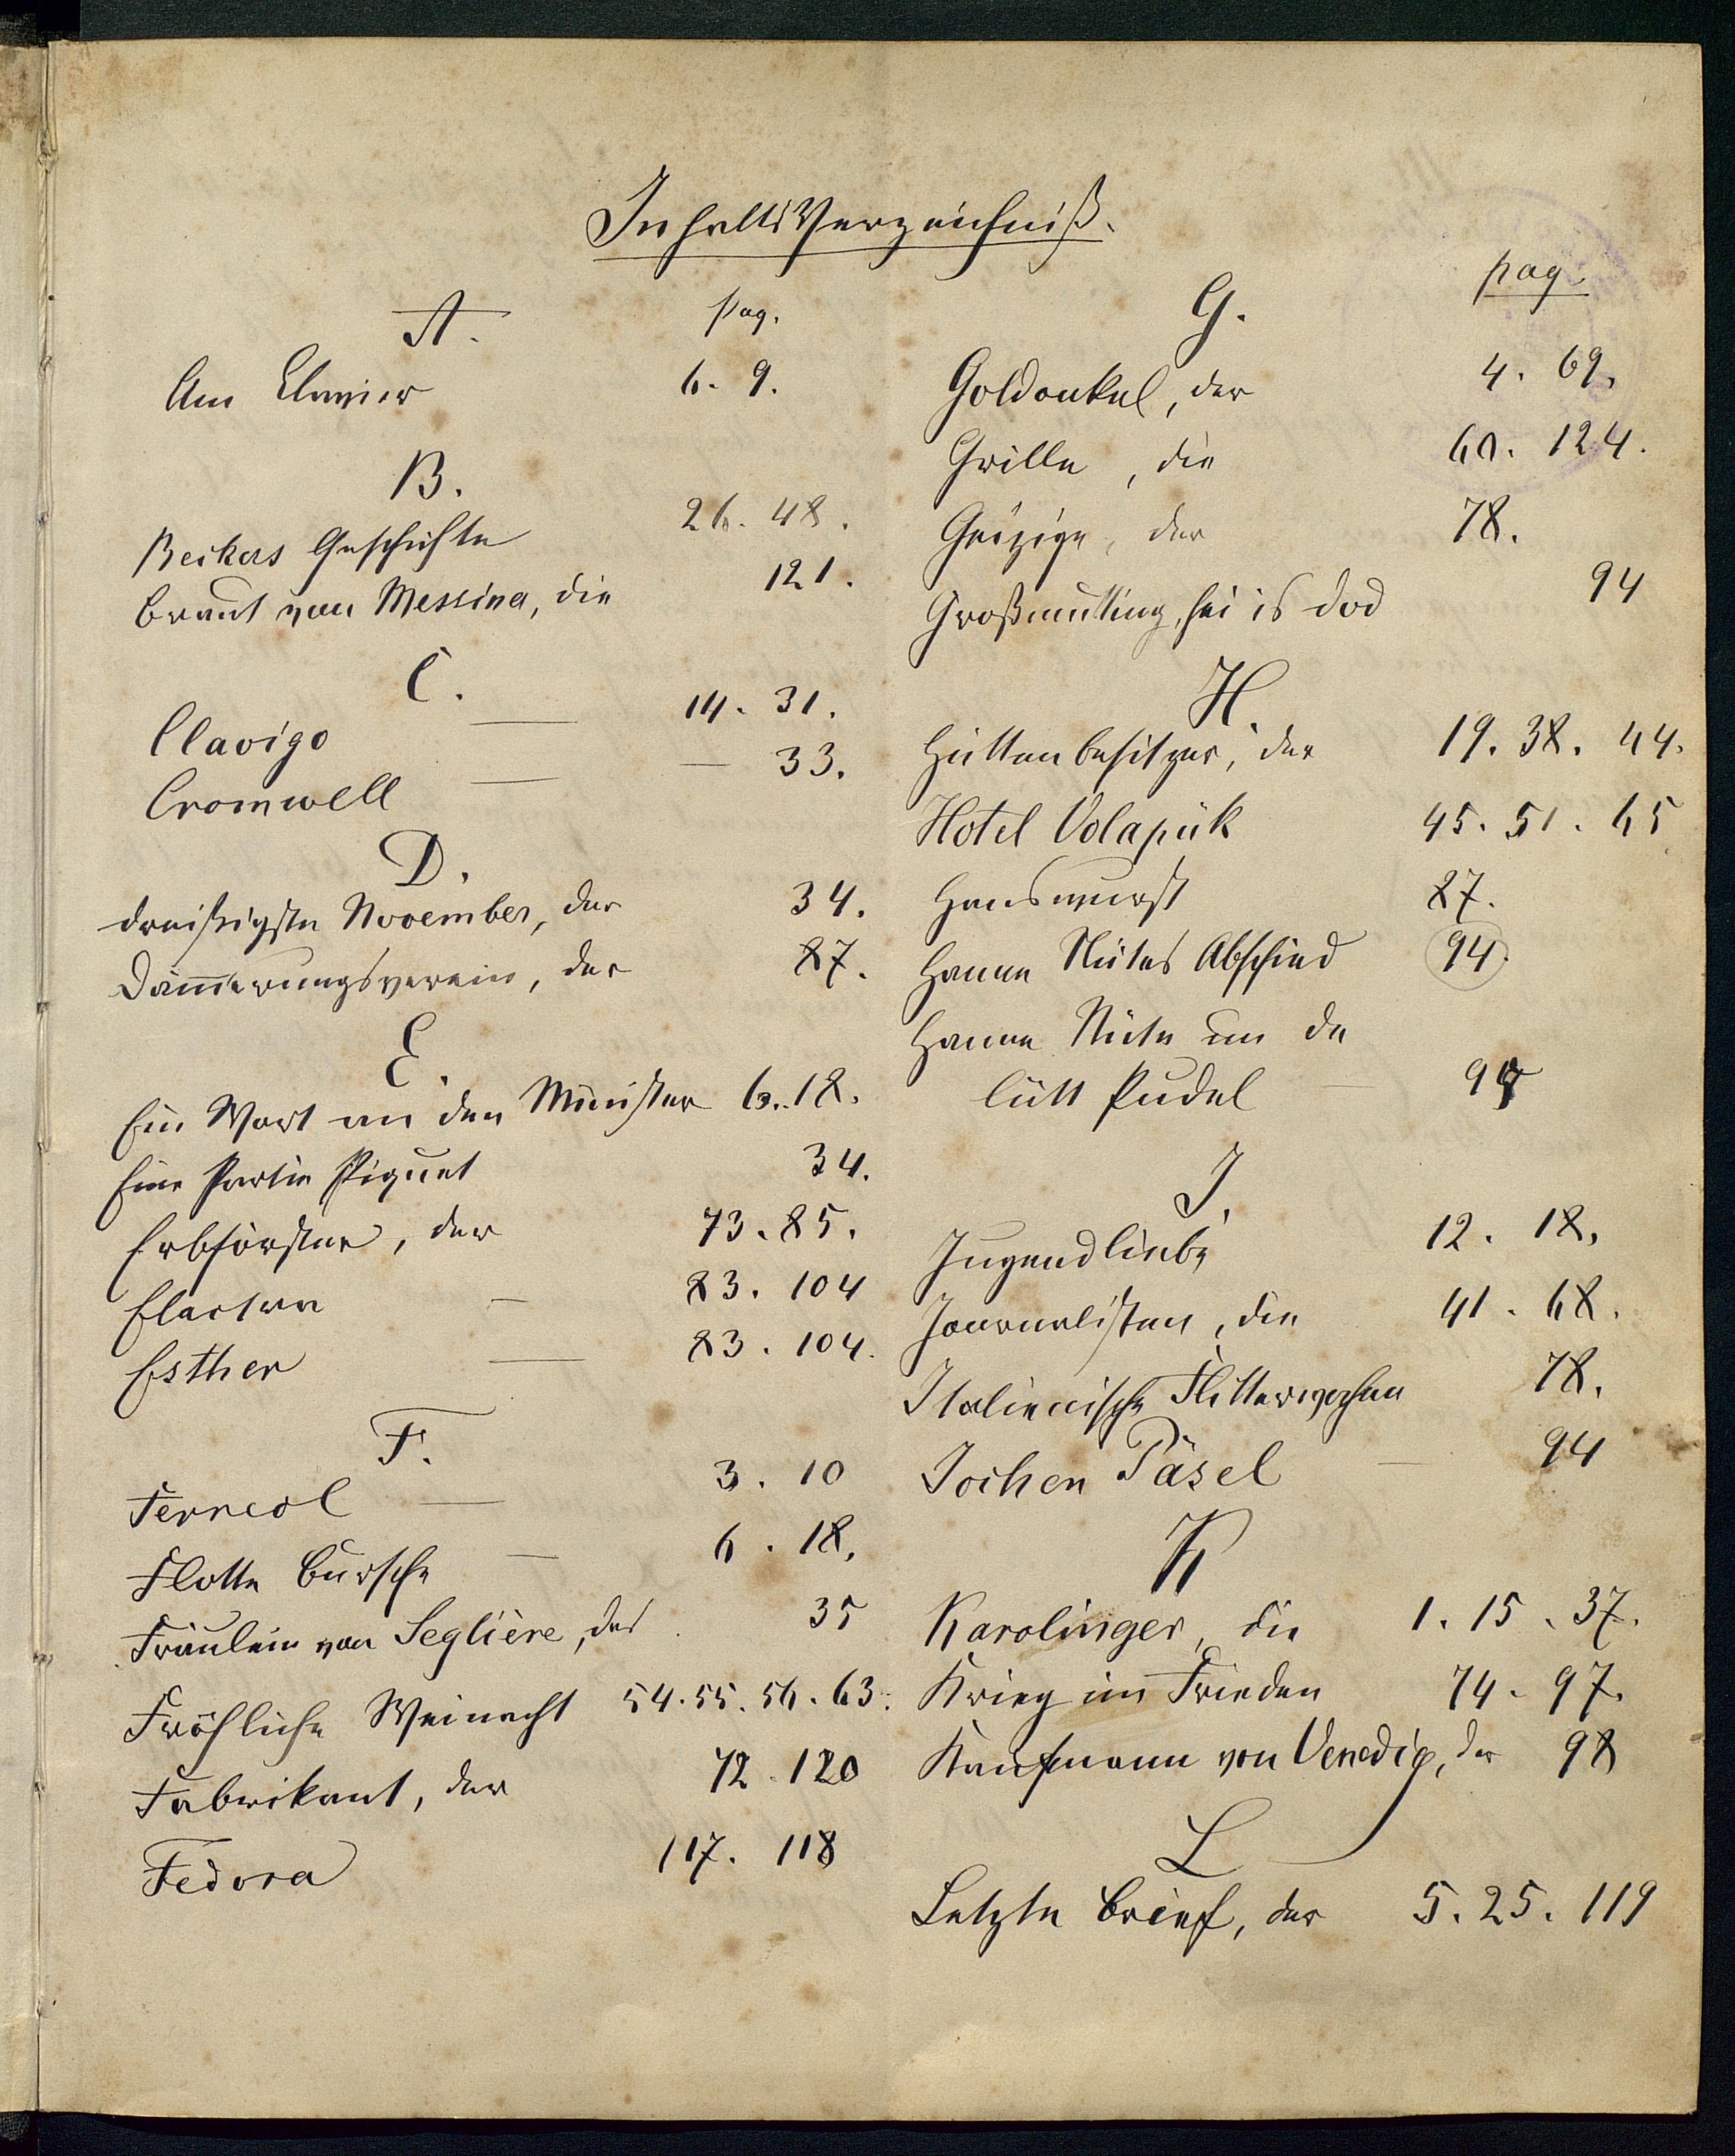 Inhalts Verzeichniß.
A.
pag.
Am Clavier 6. 9.
B.
Beckers Geschichte 26. 48.
Braut von Messina, die 121.
C.
Clavigo — 14. 31.
Cromwell — — 33.
D.
dreißigste November, der 34.
Dämerungsverein, der 87.
E.
Ein Wort an den Minister 6. 18.
Eine Partie Piquet 34.
Erbförster, der 73. 85.
Electra — 83. 104
Esther — 83. 104.
F.
Ferreol — 3. 10
Flotte Bursche — 6. 18.
Fräulein von Seglière, das 35
Fröhliche Weinacht 54. 55. 56. 63.
Fabrikant, der 72. 120
Fedora 117. 118
G.
pag.
Goldonkel, der 4. 69.
Grille, die 60. 124.
Geizige, der 78.
Großmutting, hei is dod 94
H.
Hüttenbesitzer, der 19. 38. 44.
Hotel Volapük 45. 51. 65
Hanswurst 87.
Hanne Nütes Abschied 94.
Hanne Nüte un de
lütt Pudel — 94
J.
Jugendliebe 12. 18.
Journalisten, die 41. 68.
Italienische Flitterwochen 78.
Jochen Päsel — 94
K
Karolinger, die 1. 15. 37.
Krieg im Frieden 74. 97.
Kaufmann von Venedig, der 98
L
Letzte Brief, der 5. 25. 119